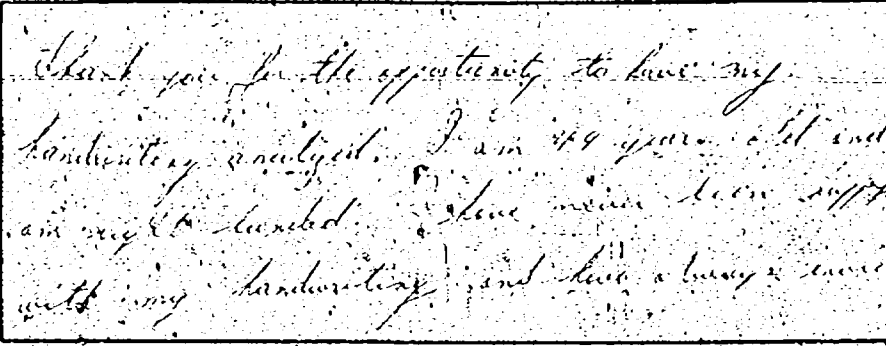 Thank you for the opportunity to have my
handwriting analyzed. I am 49 years old and
am right handed. I have never been happy
with my handwriting and have always